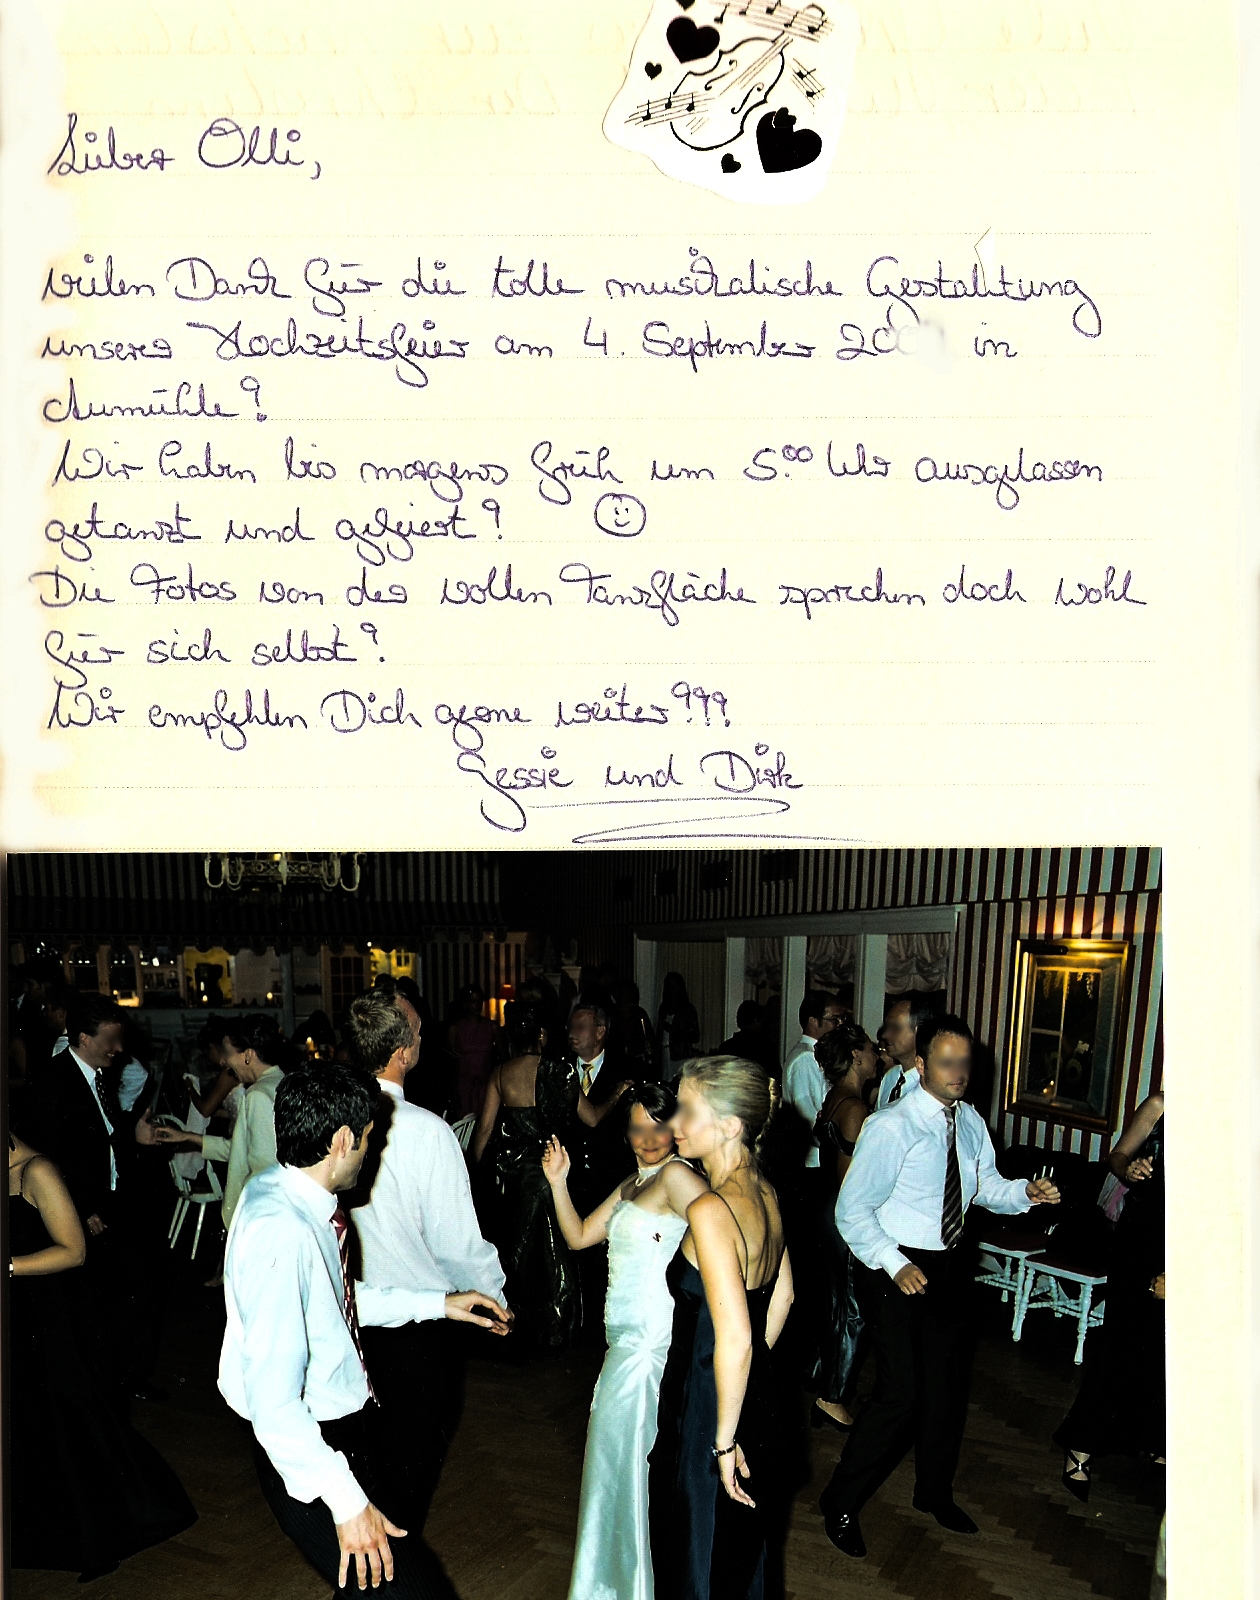 Lieber Olli,
vielen Dank für die tolle musikalische Gestaltung
unserer Hochzeitsfeier am 4. September 20 in
Aumühle!
Wir haben bis morgens früh um 5.00 Uhr ausgelassen
getanzt und gefeiert!
Die Fotos von der vollen Tanzfläche sprechen doch wohl
für sich selbst!
Wir empfehlen Dich gerne weiter!!!
Gessie und Dirk